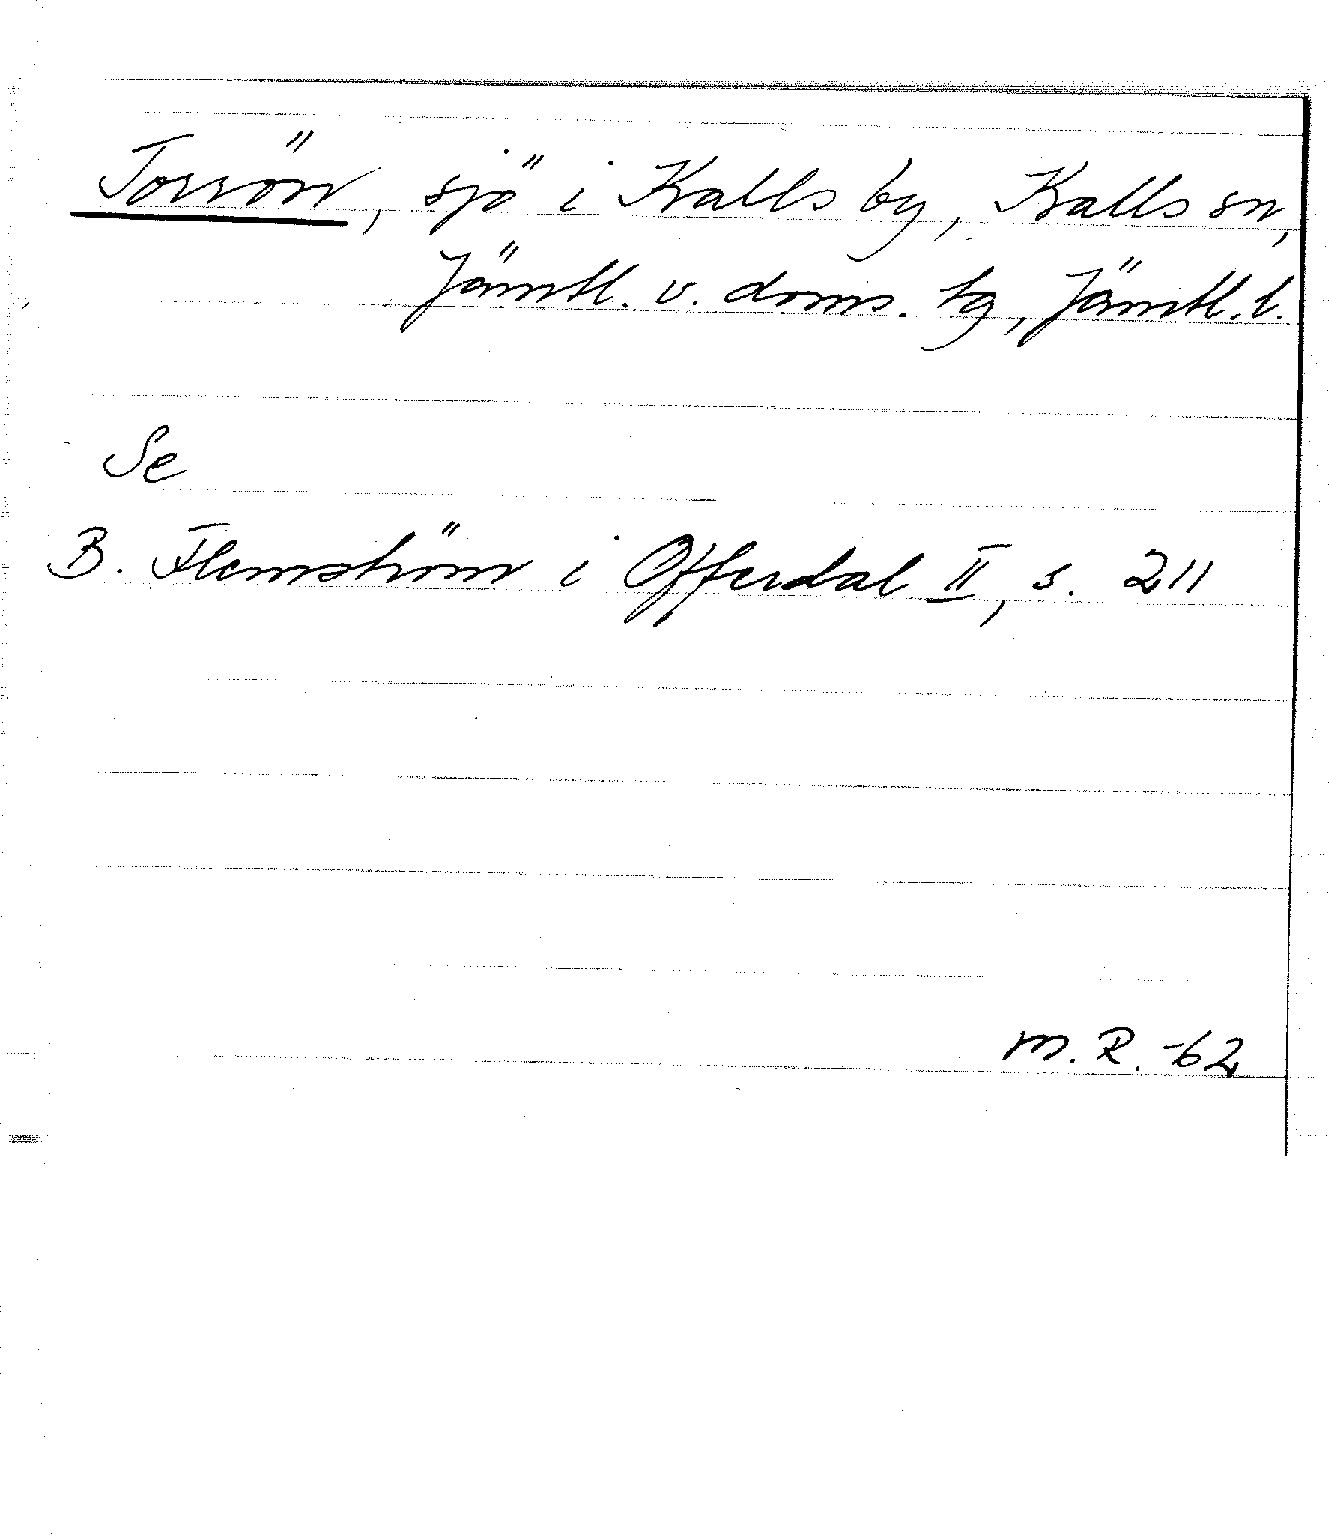 Torrön, sjö i Kalls by, Kalls sn,
Jämtl. v. doms. tg, Jämtl. l.
Se
B. Flemström i Offerdal II, s. 211
M.R. -62